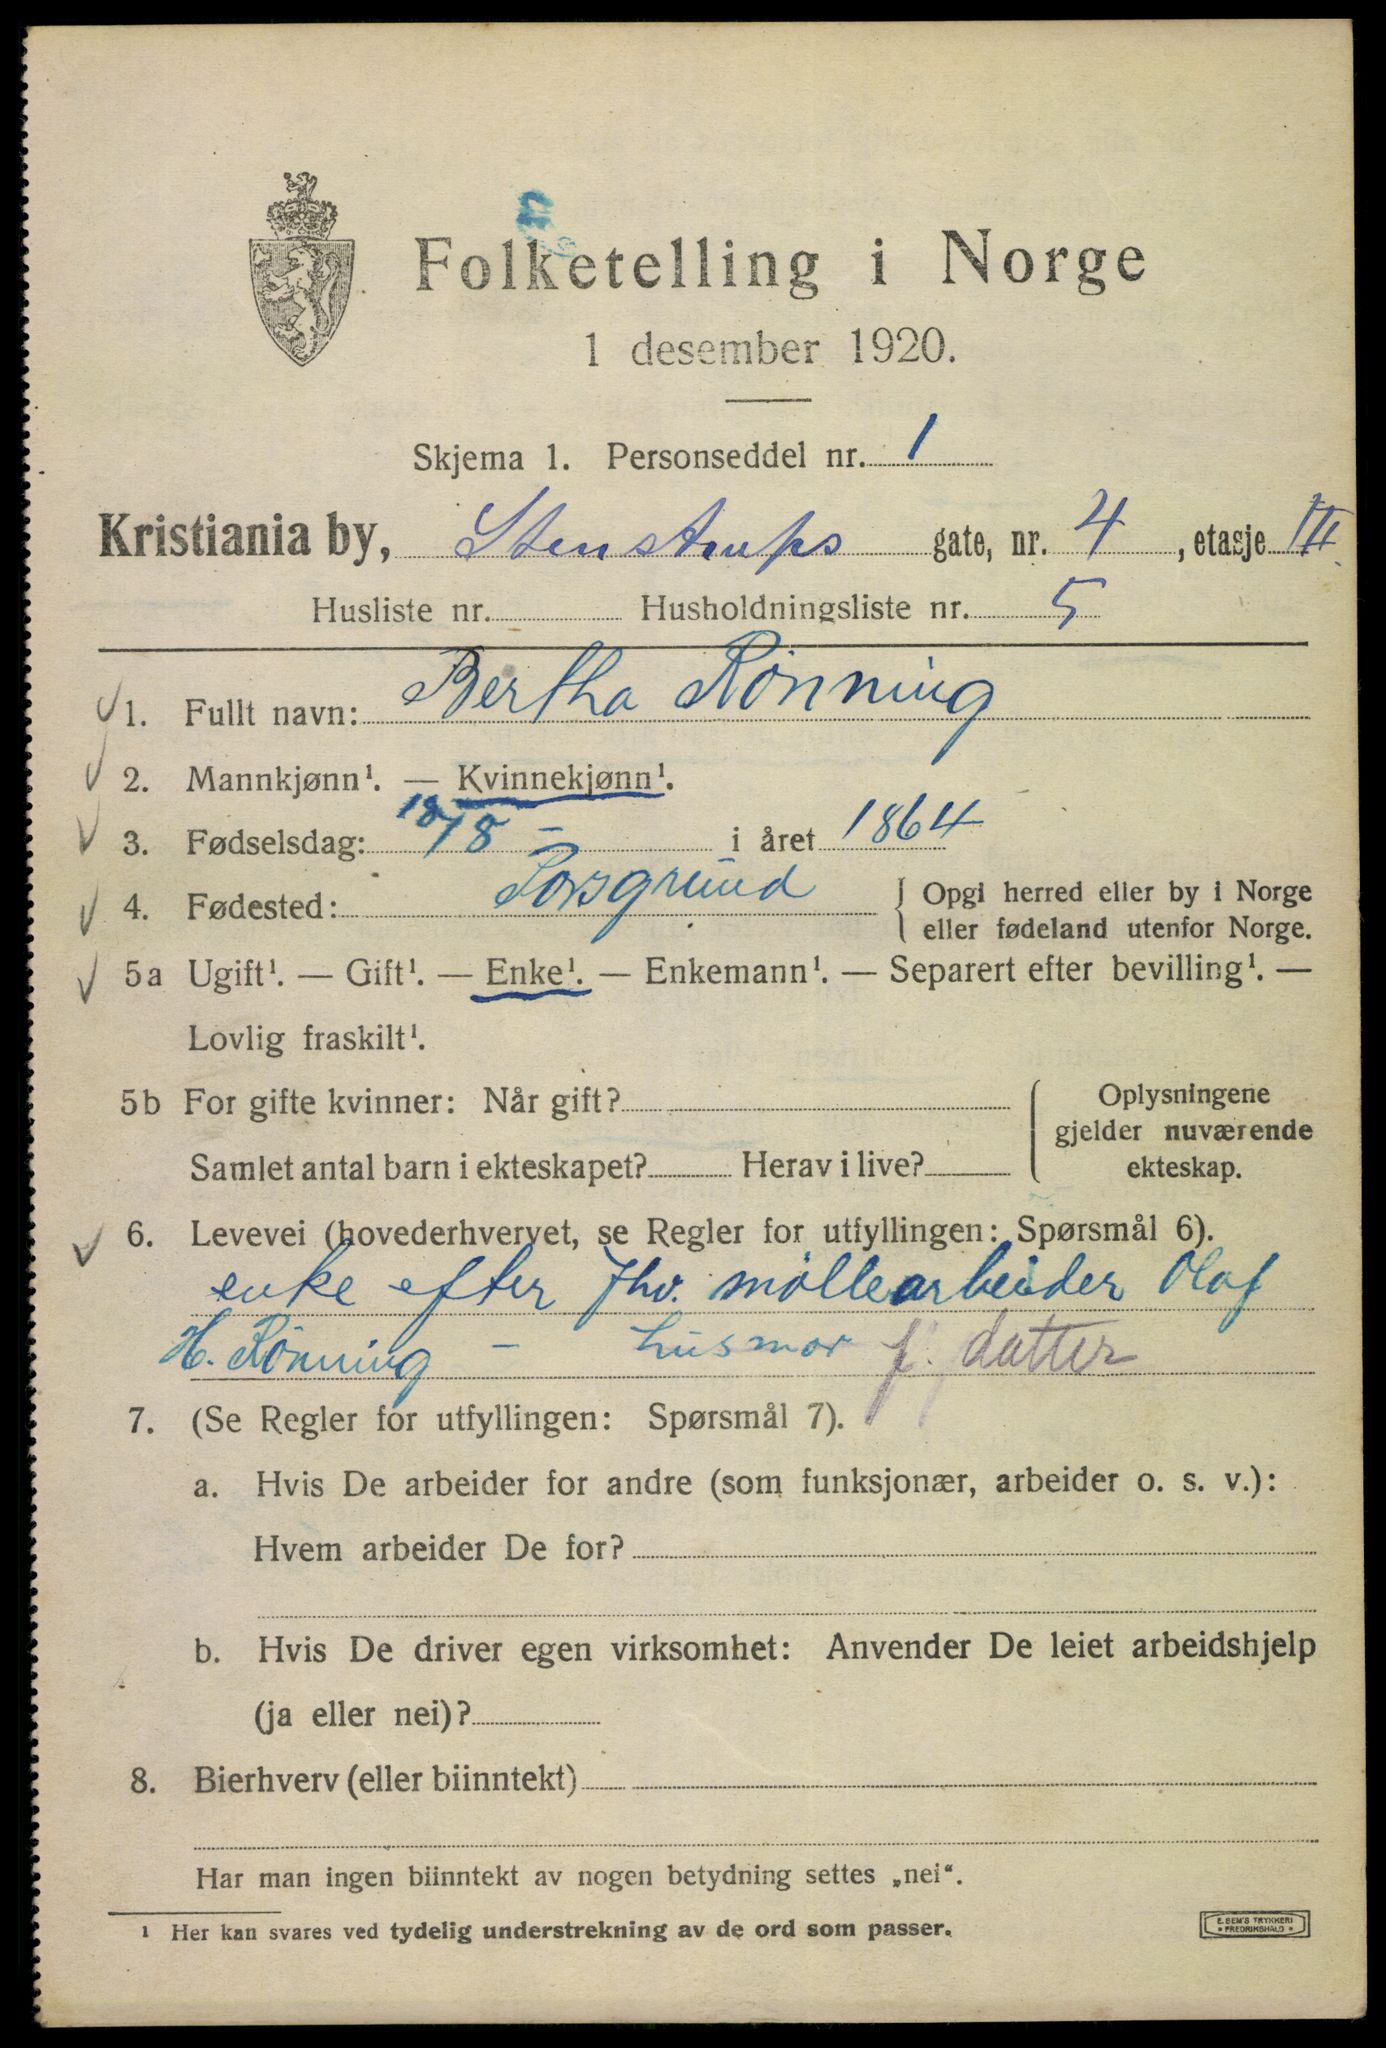 Folketelling i Norge
1 desember 1920.
Skjema 1. Personseddel nr. 1
Kristiania by, Stenstrups gate, nr. 4, etasje III.
Husliste nr. Husholdningsliste nr. 5
1. Fullt navn: Bertha Rönning
2. Mannkjønn¹. — Kvinnekjønn¹.
3. Fødselsdag: 18/8 - i året 1864
4. Fødested: Porsgrund { Opgi herred eller by i Norge
eller fødeland utenfor Norge.
5a Ugift¹. — Gift¹. — Enke¹. — Enkemann¹. — Separert efter bevilling¹. —
Lovlig fraskilt¹.
5b For gifte kvinner: Når gift? { Oplysningene
gjelder nuværende
Samlet antal barn i ekteskapet? Herav i live? ekteskap.
6. Levevei (hovederhvervet, se Regler for utfyllingen: Spørsmål 6).
enke efter fhv. möllearbeider Olaf
H. Rönning - husmor f. datter
7. (Se Regler for utfyllingen: Spørsmål 7).
a. Hvis De arbeider for andre (som funksjonær, arbeider o. s. v.):
Hvem arbeider De for?
b. Hvis De driver egen virksomhet: Anvender De leiet arbeidshjelp
(ja eller nei)?
8. Bierhverv (eller biinntekt)
Har man ingen biinntekt av nogen betydning settes „nei“.
¹ Her kan svares ved tydelig understrekning av de ord som passer.
E. SEM'S TRYKKERI
* FREDRIKSHALD *